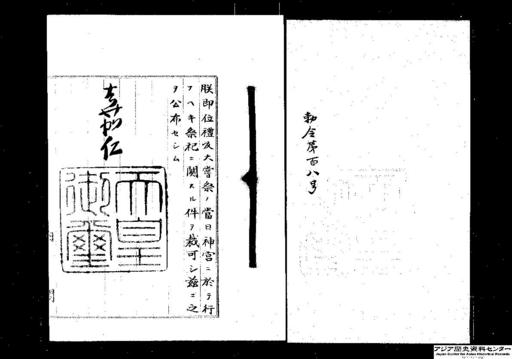 勅令第百八号
朕即位禮及大嘗祭ノ當日神宮ニ於テ行
フヘキ祭祀ニ關スル件ヲ裁可シ茲ニ之
ヲ公布セシム
嘉仁
天皇
御璽
アジア歴史資料センター
Japan Center for Asian Historical Records